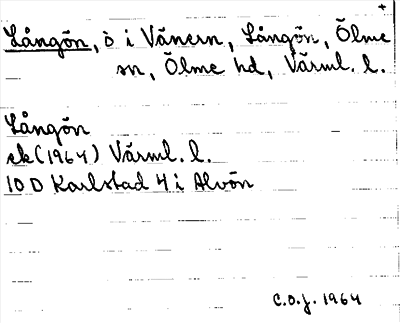 +
Långön, ö i Vänern, Långön, Ölme
sn, Ölme hd, Värml. l.
Långön
ek (1964) Värml. l.
10 D Karlstad 4 i Alvön
C.O.J. 1964